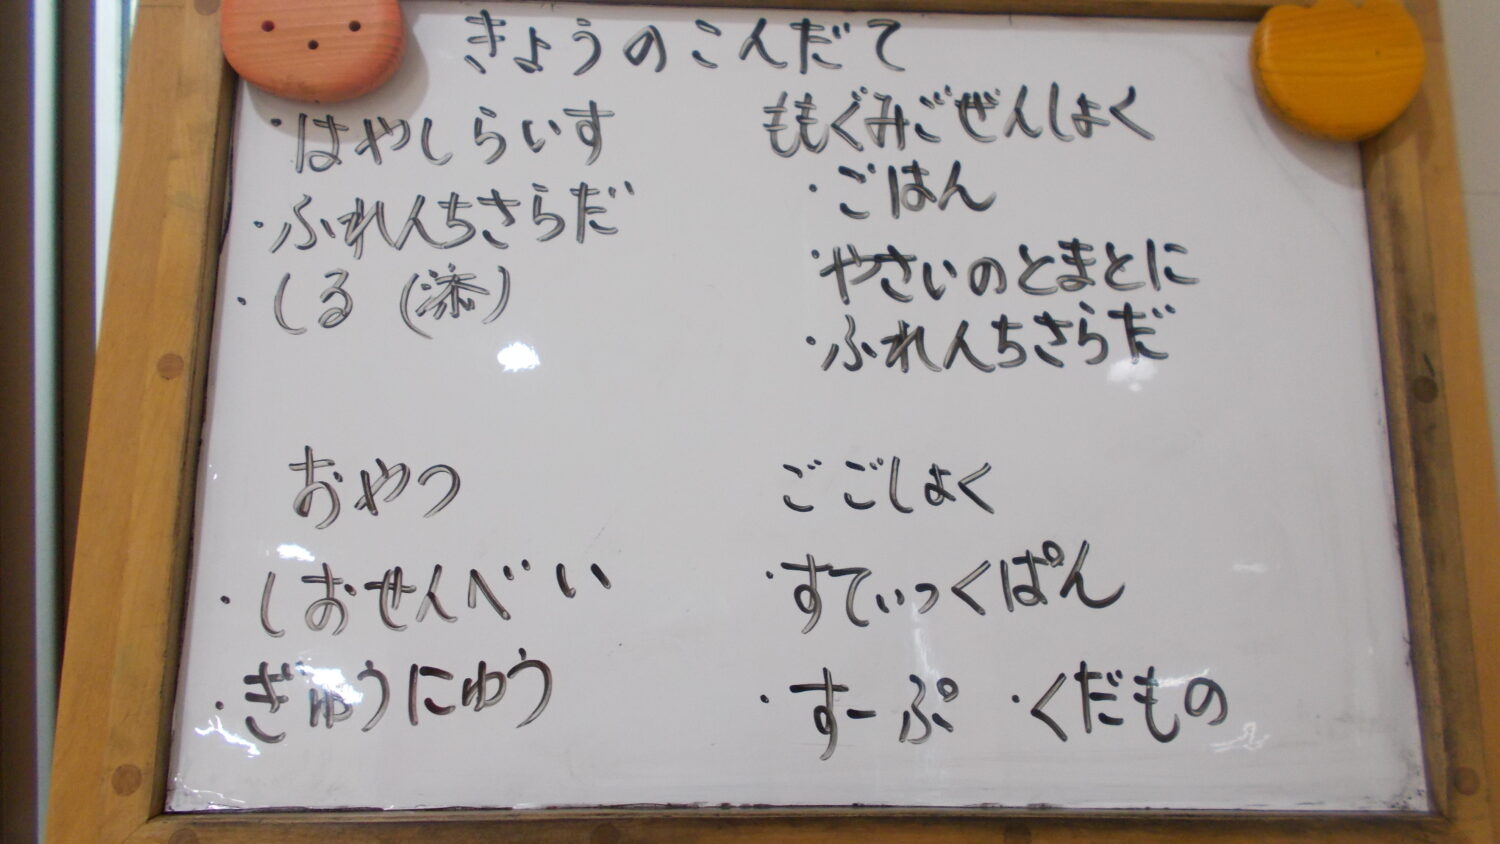 きょうのこんだて
・はやしらいす
・ふれんちさらだ
・しる (添)
ももぐみごぜんしょく
・ごはん
・やさいのとまとに
・ふれんちさらだ
おやつ
・しおせんべい
・ぎゅうにゅう
ごごしょく
・すてぃっくぱん
・すーぷ ・くだもの